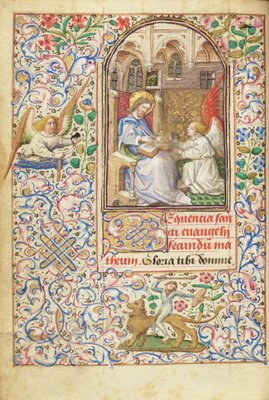 Sequencia san
cti euangelii
secundū ma
theum. Gloria tibi domine